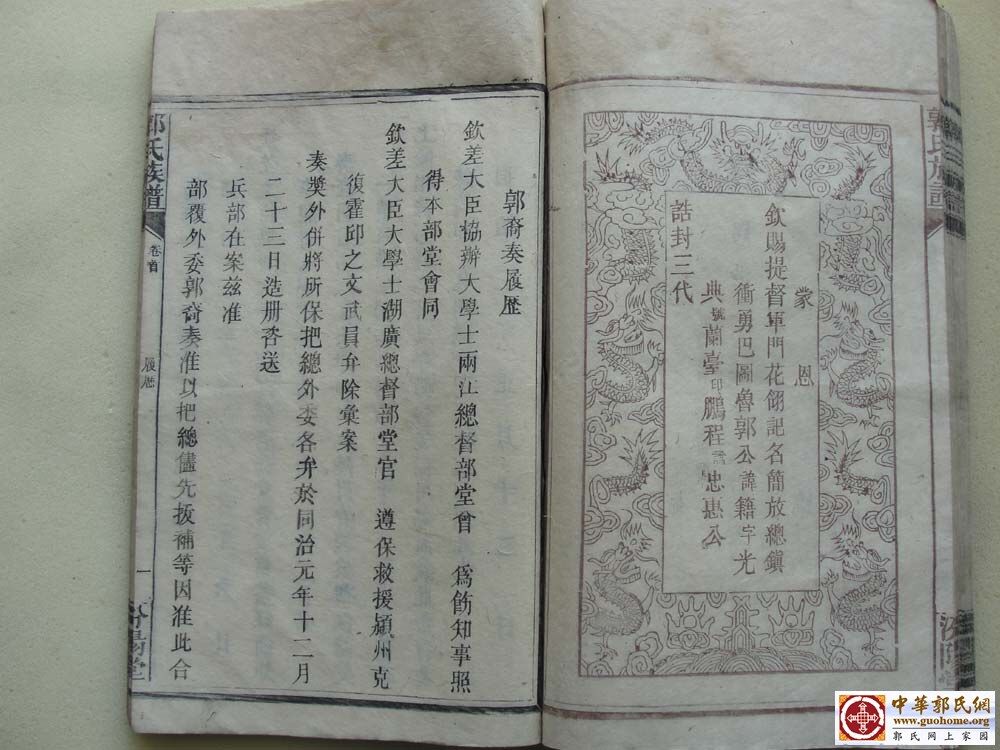 蒙恩
欽賜提督軍門花翎記名簡放總鎮
衝勇巴圖魯郭公諱籍字光
典號蘭臺印鵬程諡忠惠公
誥封三代
郭氏族譜
郭裔奏履歷
欽差大臣協辦大學士兩江總督部堂曾 爲飭知事照
得本部堂會同
欽差大臣大學士湖廣總督部堂官 遵保救援潁州克
復霍邱之文武員弁除彙案
奏奬外併將所保把總外委各弁於同治元年十二月
二十三日造册咨送
兵部在案兹准
部覆外委郭裔奏准以把總儘先拔補等因准此合
郭氏族譜
卷首
履歷
一
汾陽堂
中華郭氏網
www.guohome.org
郭氏網上家園